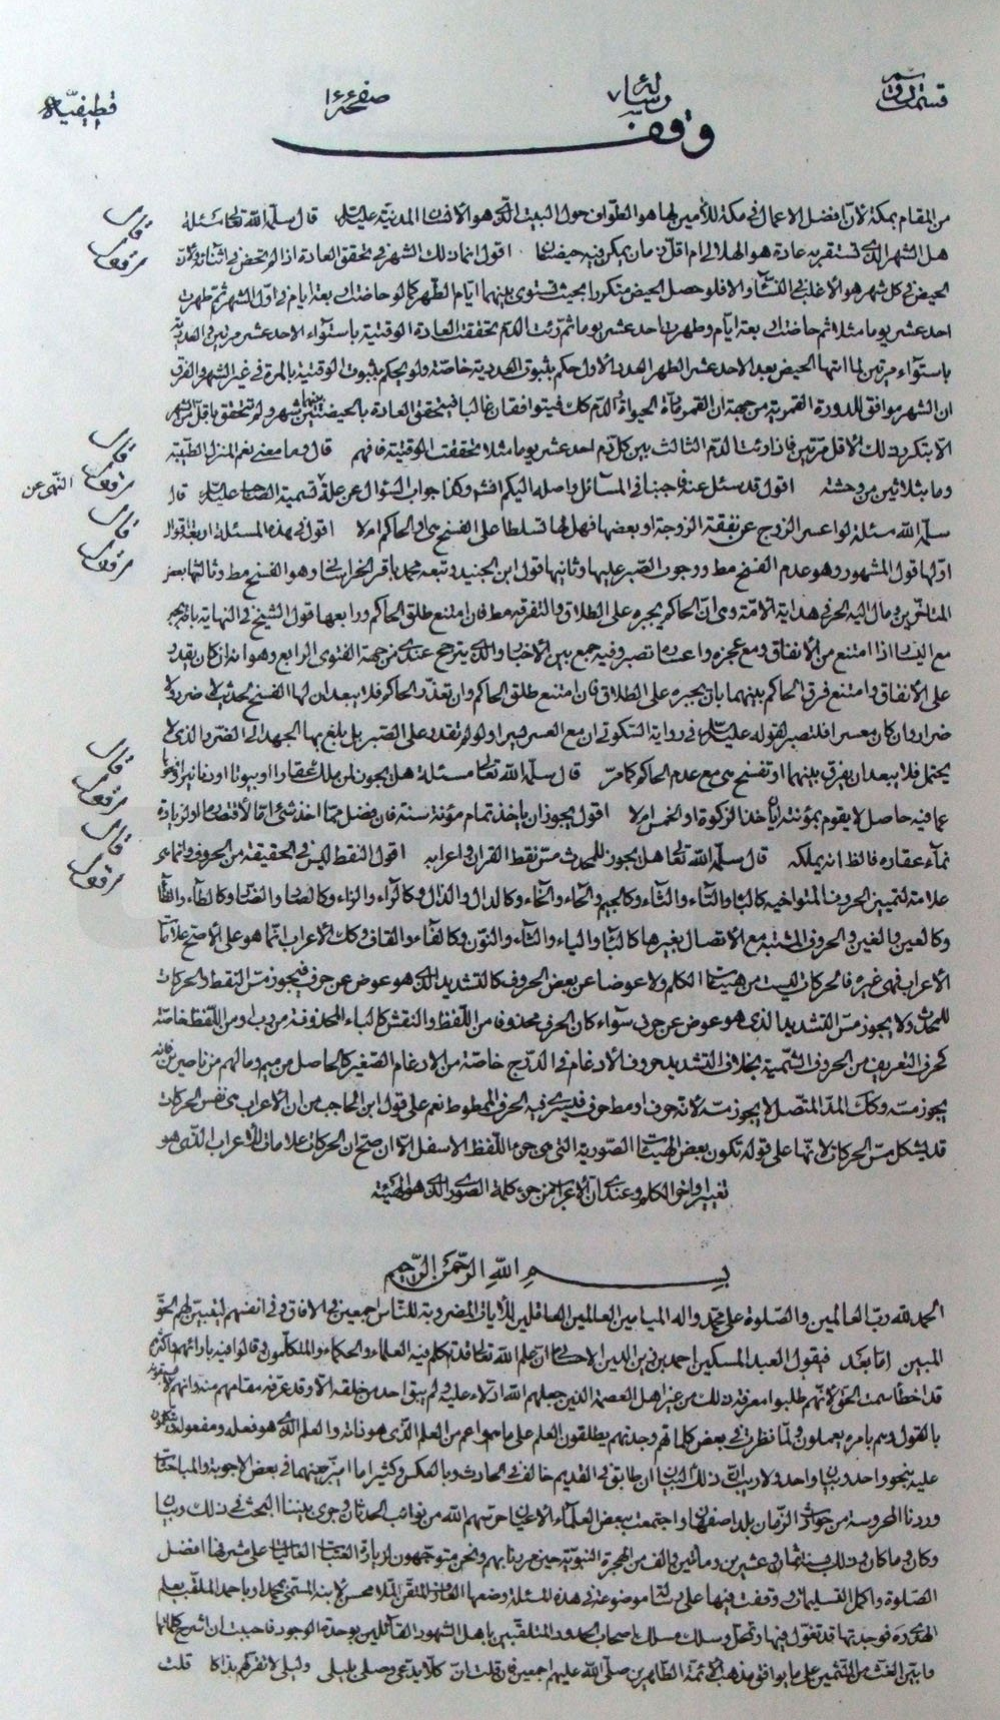 قسمت دوم رسالهٔ صفحه ١٤٤ قطیفیّه
وقف
من المقام بمكة لانّ افضل الاعمال فى مكة للأمين لها هو الطواف حول البيت الذى هو الاذن المدينة عليه قال سلّمه الله تعالى مسئلة
هل الشهر الذى تستقر به عادة هو الهلالى ام اقل زمان يمكن فيه حيضتان اقول انما ذلك الشهر فى تحقق العادة اذا لم تحض فى اثنائه ولانّ
الحيض فى كل شهر هو الاغلب فى النساء والا فلو حصل الحيض متكررا بحيث تستوى بينهما ايام الطهر كما لو حاضت اربعة ايام فى اول الشهر ثم طهرت
احد عشر يوما مثلا ثم حاضت اربعة ايام وطهرت احد عشر يوما ثم رئت الدم تحققت العادة الوقتية باستواء الاحد عشر مرتين والعددية
باستواء مرتين لما انتها الحيض بعد الاحد عشر الطهر العدد الاول حكم بثبوت العددية خاصة ولو لم يحكم بثبوت الوقتية بالمرة فى غير الشهر والفرق
ان الشهر موافق للدورة القمرية من جهة ان القمر مرآة الحيوة والدم كذلك فيتوافقان غالبا فتتحقق العادة بالحيضتين بينهما شهر ولم تتحقق باقل من شهر
الا بتكرر ذلك الاقل مرتين فاذا رئت الدم الثالث بين كل دم احد عشر يوما مثلا تحققت الوقتية فافهم قال وما معنى نعم المنزل الطيبة
وما بثلاثين من وحشة اقول قد سئل عنه فاجبنا فى المسائل واصله اليكم وكذا جواب السؤال عن علة تسمية الصاحب عليه السلام قال
النهى عن
سلّمه الله مسئلة لو اعسر الزوج عن نفقة الزوجة او بعضها فهل لها تسلط على الفسخ هى او الحاكم ام لا اقول فى هذه المسئلة اربعة اقوال
اولها قول المشهور وهو عدم الفسخ مط ووجوب الصبر عليها وثانيها قول ابن الجنيد وتبعه محمد باقر الخراسانى وهو الفسخ مط وثالثها بعض
المتأخرين ومال اليه الحر فى هداية الامّة وهى انّ الحاكم يجبره على الطلاق والتفرقة مط فان امتنع طلق الحاكم ورابعها قول الشيخ فى النهاية بانه يجبر
مع اليسار اذا امتنع من الانفاق ومع عجزه واعساره تصبر وفيه جمع بين الاخبار والذى يترجح عندى من جهة الفتوى الرابع وهو انه ان كان يقدر
على الانفاق وامتنع فرق الحاكم بينهما بان يجبره على الطلاق فان امتنع طلق الحاكم وان تعذر الحاكم فلا يبعد ان لها الفسخ لحديث لا ضرر ولا
ضرار وان كان معسرا فلتصبر لقوله عليه السلام فى رواية السكونى ان مع العسر يسرا ولو لم تقدر على الصبر بل بلغ بها الجهد الى الضرر الذى لا
يحتمل فلا يبعد ان يفرق بينهما او تفسخ هى مع عدم الحاكم كما مرّ قال سلّمه الله تعالى مسئلة هل يجوز لمن ملك عقارا او بيوتا او دنانير او نحوها
مما فيه حاصل لا يقوم بمؤنته ان ياخذ الزكوة او الخمس ام لا اقول يجوز ان ياخذ تمام مؤنة سنة فان فضل مما اخذ شئ اما لاقتصاد او لزيادة
نمآء عقاره فالظ انه يملكه قال سلّمه الله تعالى هل يجوز للمحدث مسّ نقط القرآن واعرابه اقول النقط ليس فى الحقيقة من الحروف وانما هى
علامة لتمييز الحروف المتواخيه كالبآء والتآء والثآء وكالجيم والحآء والخآء وكالدال والذال وكالرآء والزاء وكالصاد والضاد وكالطاء والظا
وكالعين والغين والحروف المشتبه مع الاتصال بغيرها كالبآء والياء والتآء والنون وكالفآء والقاف وكذلك الاعراب انما هو على الاصح علامات
الاعراب فهى غيره فالحركات ليست من هيئات الكلم ولا عوضا عن بعض الحروف كالتشديد الذى هو عوض عن حرف فيجوز مسّ النقط والحركات
للمحدث ولا يجوز مسّ التشديد الذى هو عوض عن حرف سوآء كان الحرف محذوفا من اللفظ والنقش كالياء المحذوفة من رب او من اللفظ خاصّة
كحرف التعريف من الحروف الشمسية بخلاف التشديد حروف الادغام فى الدرج خاصّة من الادغام الصغير كالحاصل من ميم وما لهم من ناصرين فانه
يجوز مسّه وكذلك المدّ المتصل لا يجوز مسّه لانه حرف او مط حرف فيسرى فيه الحرف الممطوط نعم على قول ابن الحاجب من ان الاعراب هى نفس الحركات
قد يشكل مسّ الحركات لانها على قوله تكون بعض الهيئات الصورية التى هى جزء اللفظ الاسفل الا ان صح ان الحركات علامات الاعراب الذى هو
تغيير اواخر الكلم وعندى ان الاعراب من جزء كلمة الصورى الذى هو الهيئة
بسم الله الرّحمن الرّحيم
الحمد لله ربّ العالمين والصّلوة على محمّد واله الميامين العالمين العاقلين للآيات المضروبة للنّاس اجمعين فى الافاق وفى انفسهم ليتبين لهم الحقّ
المبين امّا بعد فيقول العبد المسكين احمد بن زين الدين الاحسائى ان علم الله تعالى قد تكلم فيه العلماء والحكماء والمتكلمون وقالوا فيه بارائهم فاكثرهم
قد اخطأ سمت الحق لانهم طلبوا معرفة ذلك من غير اهل العصمة الذين جعلهم الله ادلاء عليه ولم يبق احد من خلقه الا وقد عرفه مقامهم منه وانهم لا يسبقونه
بالقول وهم بامره يعملون ولمّا نظرت فى بعض كلماتهم وجدتهم يطلقون العلم على ما هو اعم من العلم الذى هو ذاته والعلم الذى هو فعله ومفعوله ويتكلمون
عليه بنحو واحد وبيان واحد ولا ريب ان ذلك البيان ان طابق فى القديم خالف فى الحادث وبالعكس وكثيرا ما اميز بينهما فى بعض الاجوبة والمباحثات
وردنا المحروسة من حوادث الزمان بلد اصفهان واجتمعت ببعض العلمآء الاعيان حرسهم الله من نوائب الحدثان وجرى بيننا البحث فى ذلك وبيان
وكان ما كان وذلك سنة ثمان وعشرين ومائتين والف من الهجرة النبوية حين مررنا بهم ونحن متوجهون لزيارة العتبات العاليات على مشرفها افضل
الصّلوة واكمل التسليمات وقفت فيها على رسالة موضوعة فى هذه المسئلة وضعها الفاخر المتقن الملا محسن لابنه المسمّى بمحمد او باحمد الملقّب بعلم
الهدى ره فوجدتها قد تغوّل فيها وتمحّل وسلك مسلك اصحاب الحدود المتلقبين باهل الشهود القائلين بوحدة الوجود فاحببت ان اشرح كلماتها
وابيّن الغث من الثمين على ما يوافق مذهب الائمّة الطّاهرين صلّى الله عليهم اجمعين فان قلت انّ كلّا يدّعى وصلى بليلى وليلى لا تقر لهم بذاكا قلت